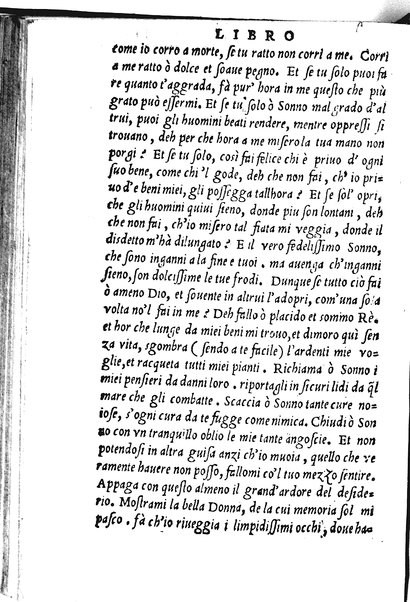 LIBRO
come io corro a morte, se tu ratto non corri a me. Corri
a me ratto ò dolce et soaue pegno. Et se tu solo puoi fa
re quanto t'aggrada, fà pur' hora in me questo che più
grato può essermi. Et se tu solo ò Sonno mal grado d'al
trui, puoi gli huomini beati rendere, mentre oppressi si
trouano, deh per che hora a me misero la tua mano non
porgi? Et se tu solo, così fai felice chi è priuo d' ogni
suo bene, come chi'l gode, deh che non fai, ch' io pri=
uo d'e beni miei, gli possegga tallhora? Et se sol' opri,
che gli huomini quiui sieno, donde piu son lontani, deh
che non fai, ch'io misero tal fiata mi veggia, donde il
disdetto m'hà dilungato? E il vero fedelissimo Sonno,
che sono inganni a la fine e tuoi. ma auenga ch'inganni
sieno, son dolcissime le tue frodi. Dunque se tutto ciò fai
ò ameno Dio, et souente in altrui l'adopri, com'una sola
volta no'l fai in me? Deh fallo ò placido et sommo Rè.
et hor che lunge da miei beni mi trouo, et dimoro qui sen
za vita, sgombra (sendo a te facile) l'ardenti mie vo=
glie, et racqueta tutti miei pianti. Richiama ò Sonno i
miei pensieri da danni loro. riportagli in sicuri lidi da q̃l
mare che gli combatte. Scaccia ò Sonno tante cure no=
iose, s'ogni cura da te fugge come nimica. Chiudi ò Son
no con vn tranquillo oblio le mie tante angoscie. Et non
potendosi in altra guisa anzi ch'io muoia, quello che ve
ramente hauere non posso, fallomi co'l tuo mezzo sentire.
Appaga con questo almeno il grand'ardore del deside=
rio. Mostrami la bella Donna, de la cui memoria sol mi
pasco. fà ch'io riueggia i limpidissimi occhi, doue ha=